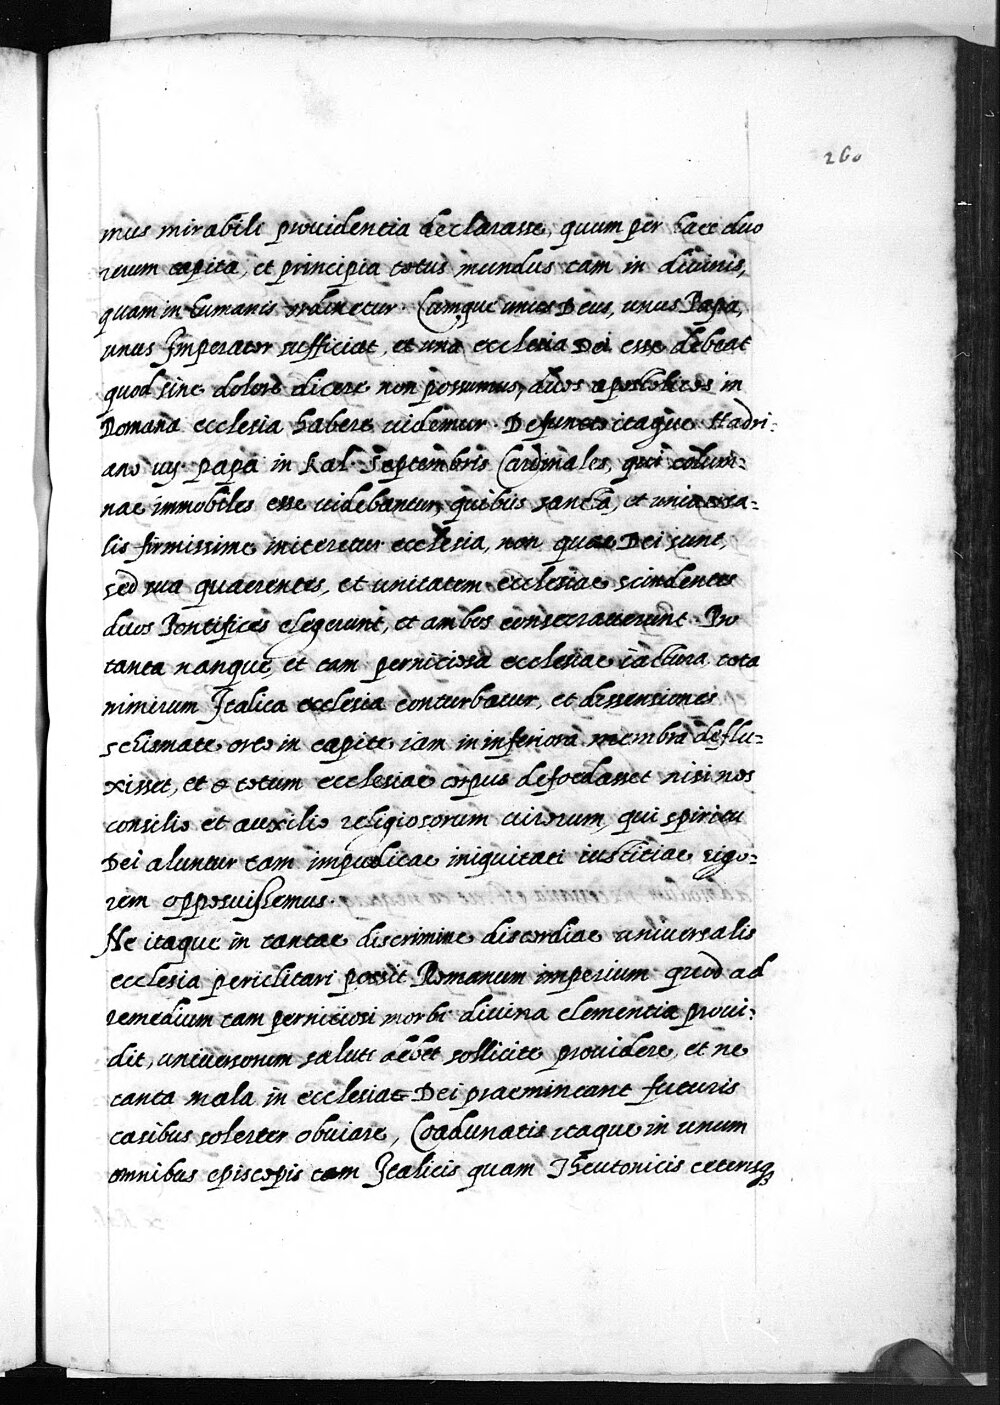 260
mus mirabili prouidentia declarasse, quum per haec duo
rerum capita, et principia totus mundus tam in diuinis,
quam in humanis ordinetur. Cumque unus Deus, unus Papa,
unus Imperator sufficiat, et una ecclesia Dei esse debeat
quod sine dolore dicere non possumus, duos apostolicos in
Romana ecclesia habere uidemur. Defuncto itaque Hadri-
ano iiij. papa in Kal. Septembris Cardinales, qui colum-
nae immobiles esse uidebantur, quibus sancta, et uniuersa-
lis firmissime niteretur ecclesia, non quae Dei sunt,
sed sua quaerentes, et unitatem ecclesiae scindentes
duos Pontifices elegerunt, et ambos consecrauerunt. Pro
tanta nanque, et tam perniciosa ecclesiae iactura tota
nimirum Italica ecclesia conturbatur, et dissensiones
schismate orto in capite iam in inferiora membra deflu-
xisset, et totum ecclesiae corpus defoedasset nisi nos
consilio et auxilio religiosorum uirorum, qui spiritu
Dei aluntur tam impudicae iniquitati iustitiae rigo-
rem opposuissemus.
Ne itaque in tantae discrimine discordiae uniuersalis
ecclesia periclitari possit Romanum imperium quod ad
remedium tam perniciosi morbi diuina clementia proui-
dit, uniuersorum saluti debet sollicite prouidere, et ne
tanta mala in ecclesiae Dei praemineant futuris
casibus solerter obuiare, Coadunatis itaque in unum
omnibus episcopis tam Italicis quam Theutonicis ceterisq3